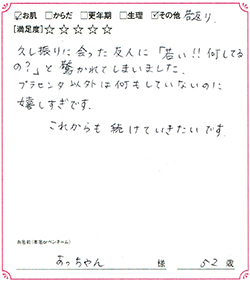 ☑お肌 □からだ □更年期 □生理 ☑その他 若返り
[満足度]☆☆☆☆☆
久し振りに会った友人に「若い!!何してる
の?」と驚かれてしまいました.
プラセンタ以外は何もしていないのに
嬉しすぎです.
これからも続けていきたいです.
お名前(本名orペンネーム)
あっちゃん 様 52 歳